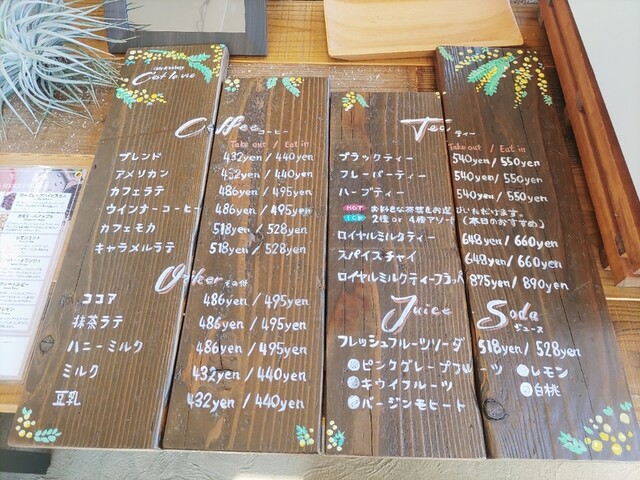 C'est la vie
Coffee コーヒー
Take out / Eat in
ブレンド 432yen / 440yen
アメリカン 432yen / 440yen
カフェラテ 486yen / 495yen
ウインナーコーヒー 486yen / 495yen
カフェモカ 518yen / 528yen
キャラメルラテ 518yen / 528yen
Other その他
ココア 486yen / 495yen
抹茶ラテ 486yen / 495yen
ハニーミルク 486yen / 495yen
ミルク 432yen / 440yen
豆乳 432yen / 440yen
Tea ティー
Take out / Eat in
ブラックティー 540yen / 550yen
フレーバーティー 540yen / 550yen
ハーブティー 540yen / 550yen
HOT お好きな茶葉をお選びいただけます。
ICE 2種 or 4種アソート (本日のおすすめ)
ロイヤルミルクティー 648yen / 660yen
スパイスチャイ 648yen / 660yen
ロイヤルミルクティーフラッペ 875yen / 890yen
Juice Soda ジュース
フレッシュフルーツソーダ 518yen / 528yen
ピンクグレープフルーツ レモン
キウイフルーツ 白桃
バージンモヒート